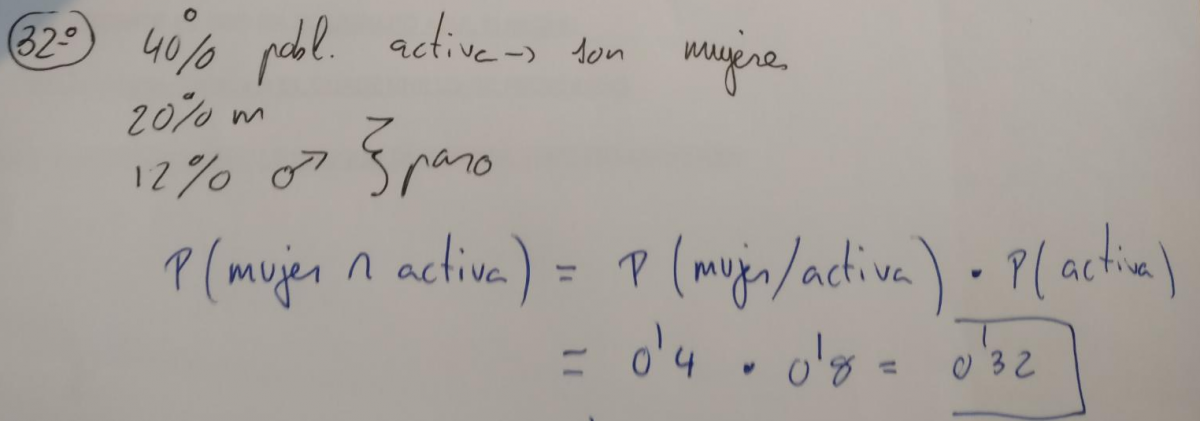 32º 40% pobl. activa → son mujeres
20% m
12% ♂ } paro
P(mujer ∩ activa) = P(mujer/activa) · P(activa)
= 0'4 · 0'8 = 0'32